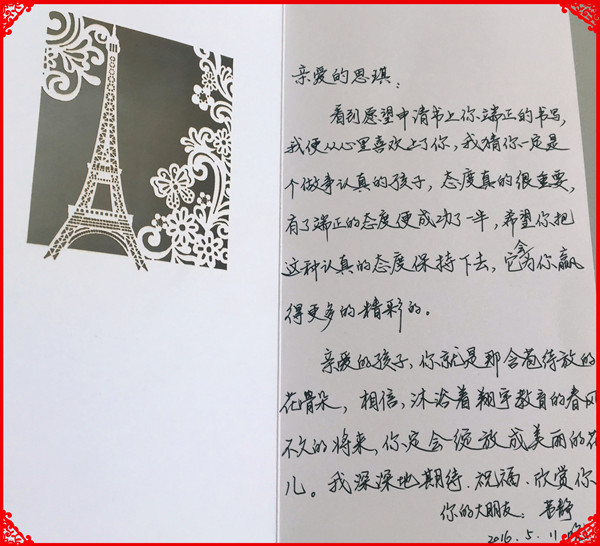 亲爱的思琪：
看到愿望申请书上你端正的书写，
我便从心里喜欢上了你，我猜你一定是
个做事认真的孩子，态度真的很重要，
有了端正的态度便成功了一半，希望你把
这种认真的态度保持下去，它会为你赢
得更多的精彩的。
亲爱的孩子，你就是那含苞待放的
花骨朵，相信，沐浴着翔宇教育的春风
不久的将来，你定会绽放成美丽的花
儿。我深深地期待、祝福、欣赏你
你的大朋友：静
2016.5.11